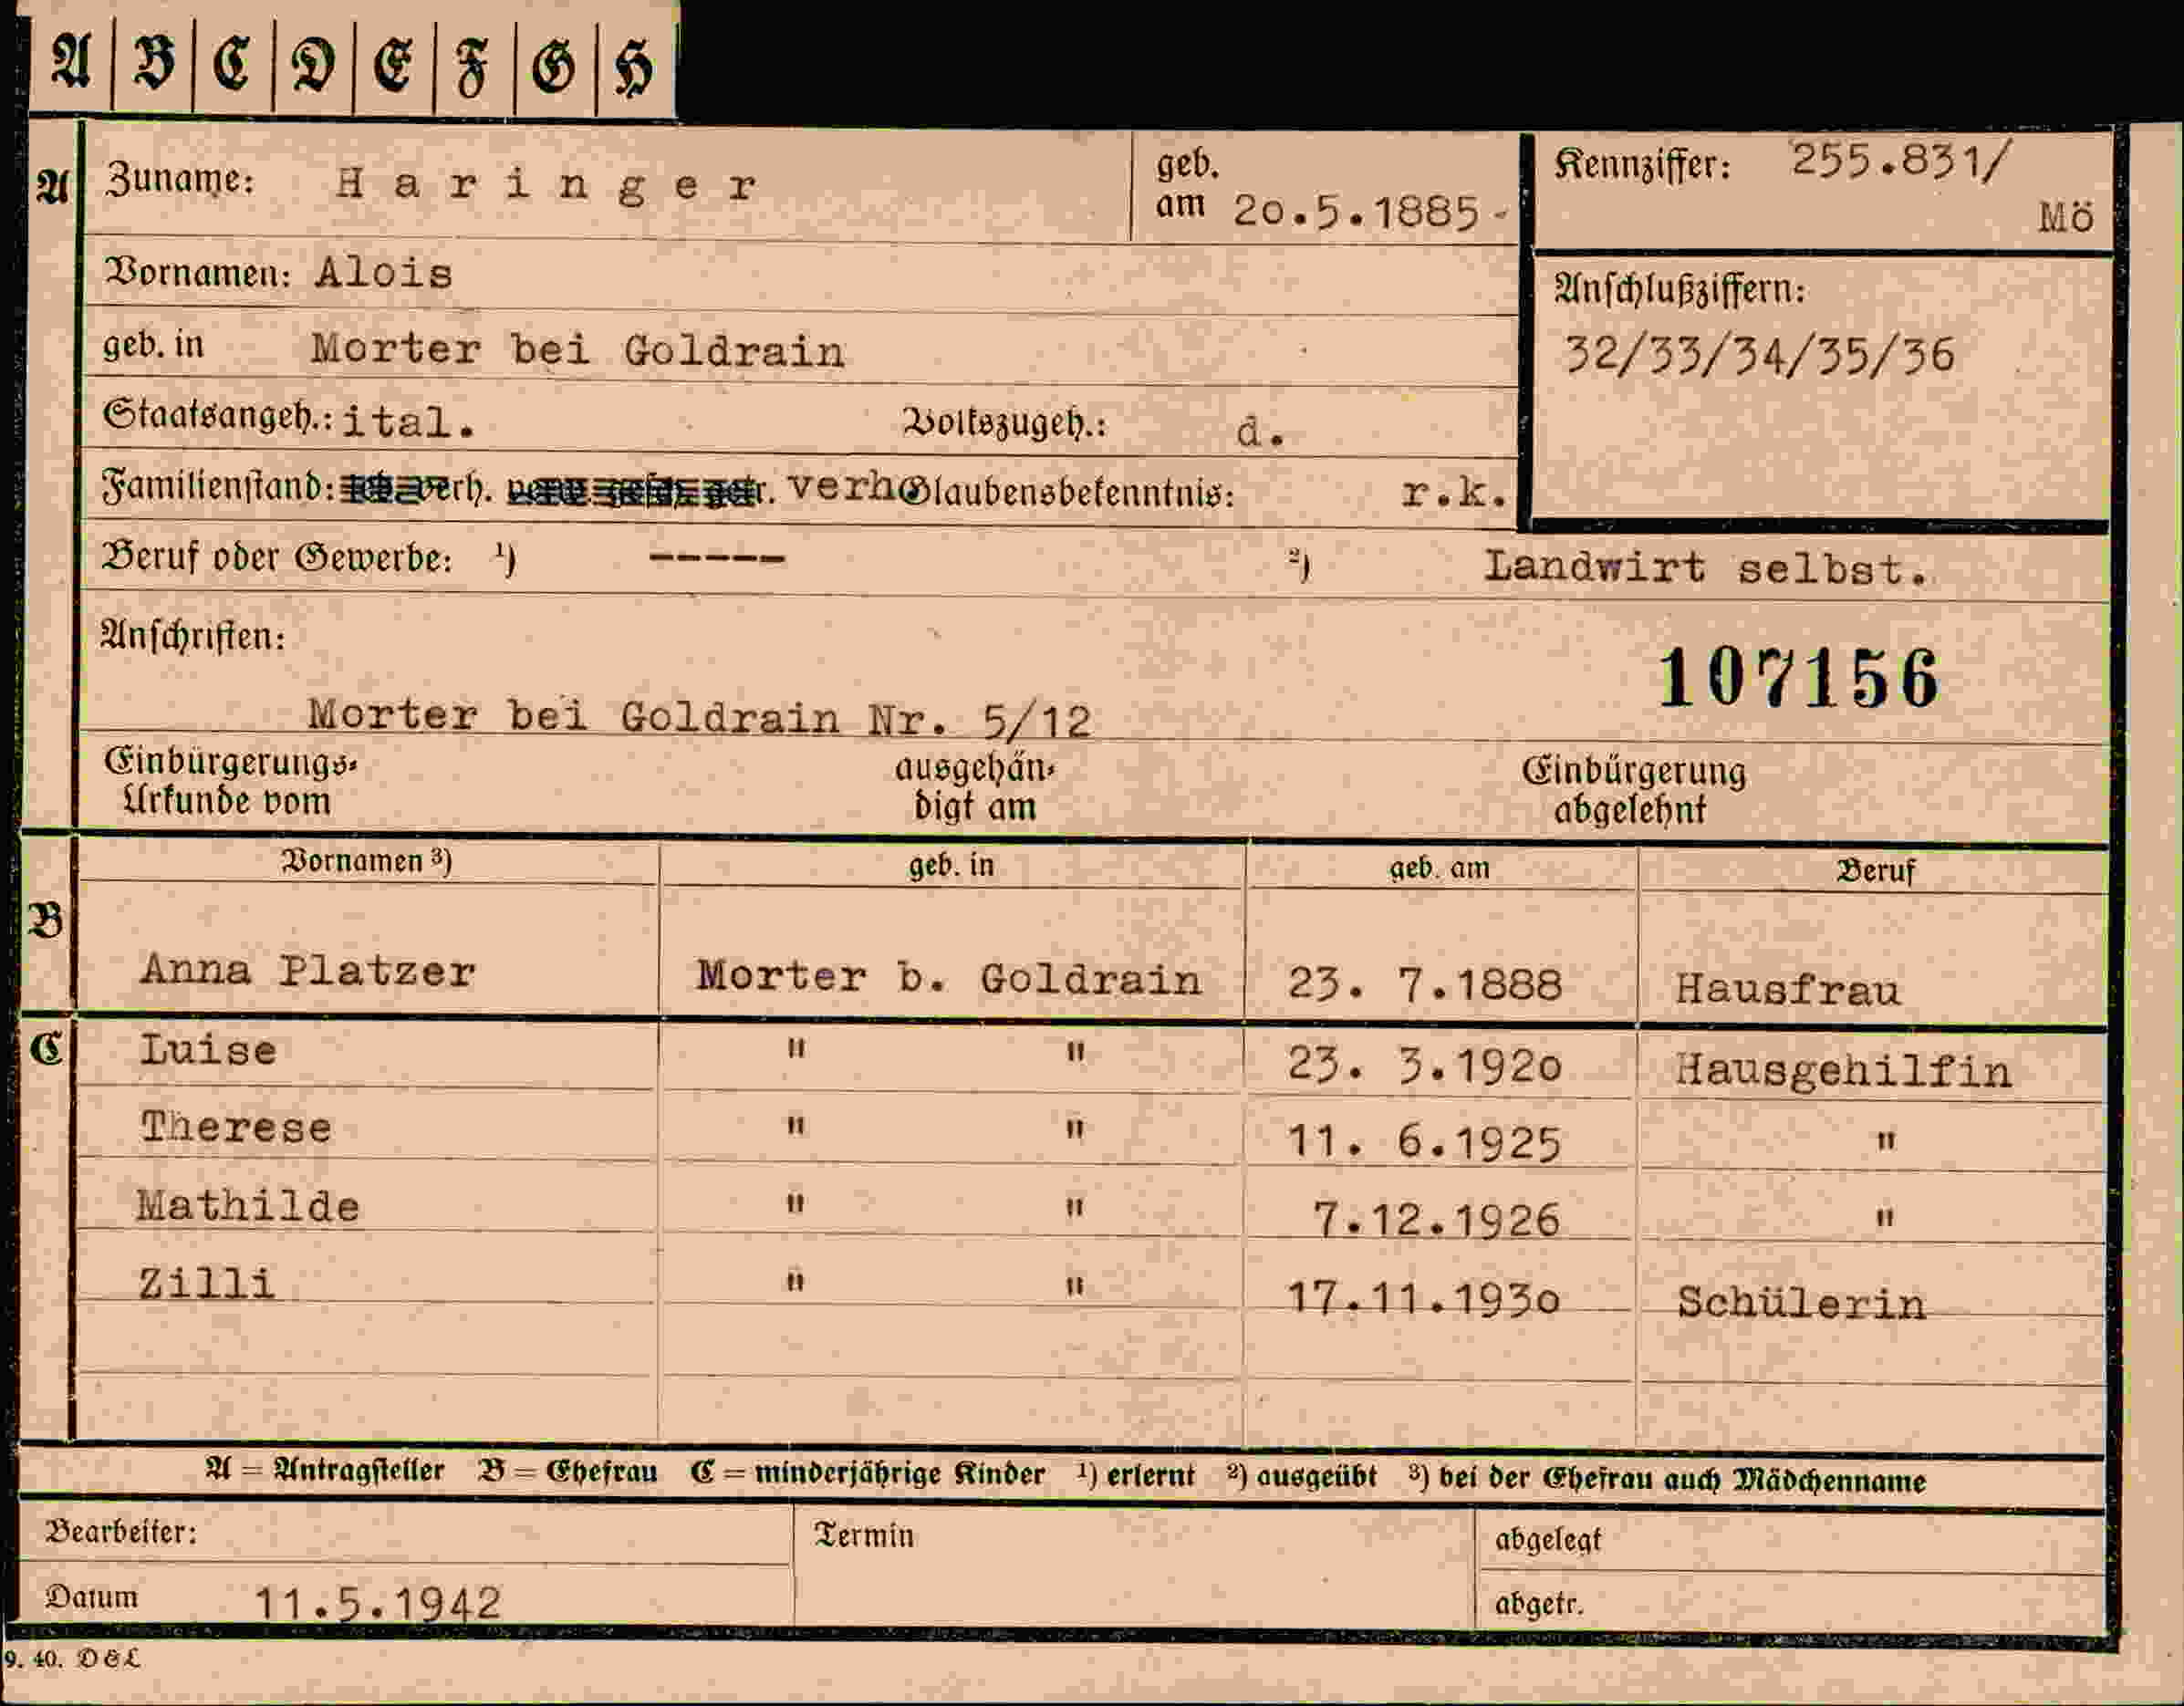 A B C D E F G H
A Zuname: Haringer geb. am 20.5.1885- Kennziffer: 255.831/
Mö
Vornamen: Alois
Anschlußziffern:
geb. in Morter bei Goldrain
32/33/34/35/36
Staatsangeh.: ital. Volkszugeh.: d.
Familienstand: verh. verh Glaubensbekenntnis: r.k.
Beruf oder Gewerbe: ¹) ----- ²) Landwirt selbst.
Anschriften:
107156
Morter bei Goldrain Nr. 5/12
Einbürgerungs- ausgehän- Einbürgerung
Urkunde vom digt am abgelehnt
Vornamen ³) geb. in geb. am Beruf
B
Anna Platzer Morter b. Goldrain 23. 7.1888 Hausfrau
C Luise " " 23. 3.1920 Hausgehilfin
Therese " " 11. 6.1925 "
Mathilde " " 7.12.1926 "
Zilli " " 17.11.1930 Schülerin
A = Antragsteller B = Ehefrau C = minderjährige Kinder ¹) erlernt ²) ausgeübt ³) bei der Ehefrau auch Mädchenname
Bearbeiter: Termin abgelegt
Datum 11.5.1942 abgetr.
9. 40. D&L